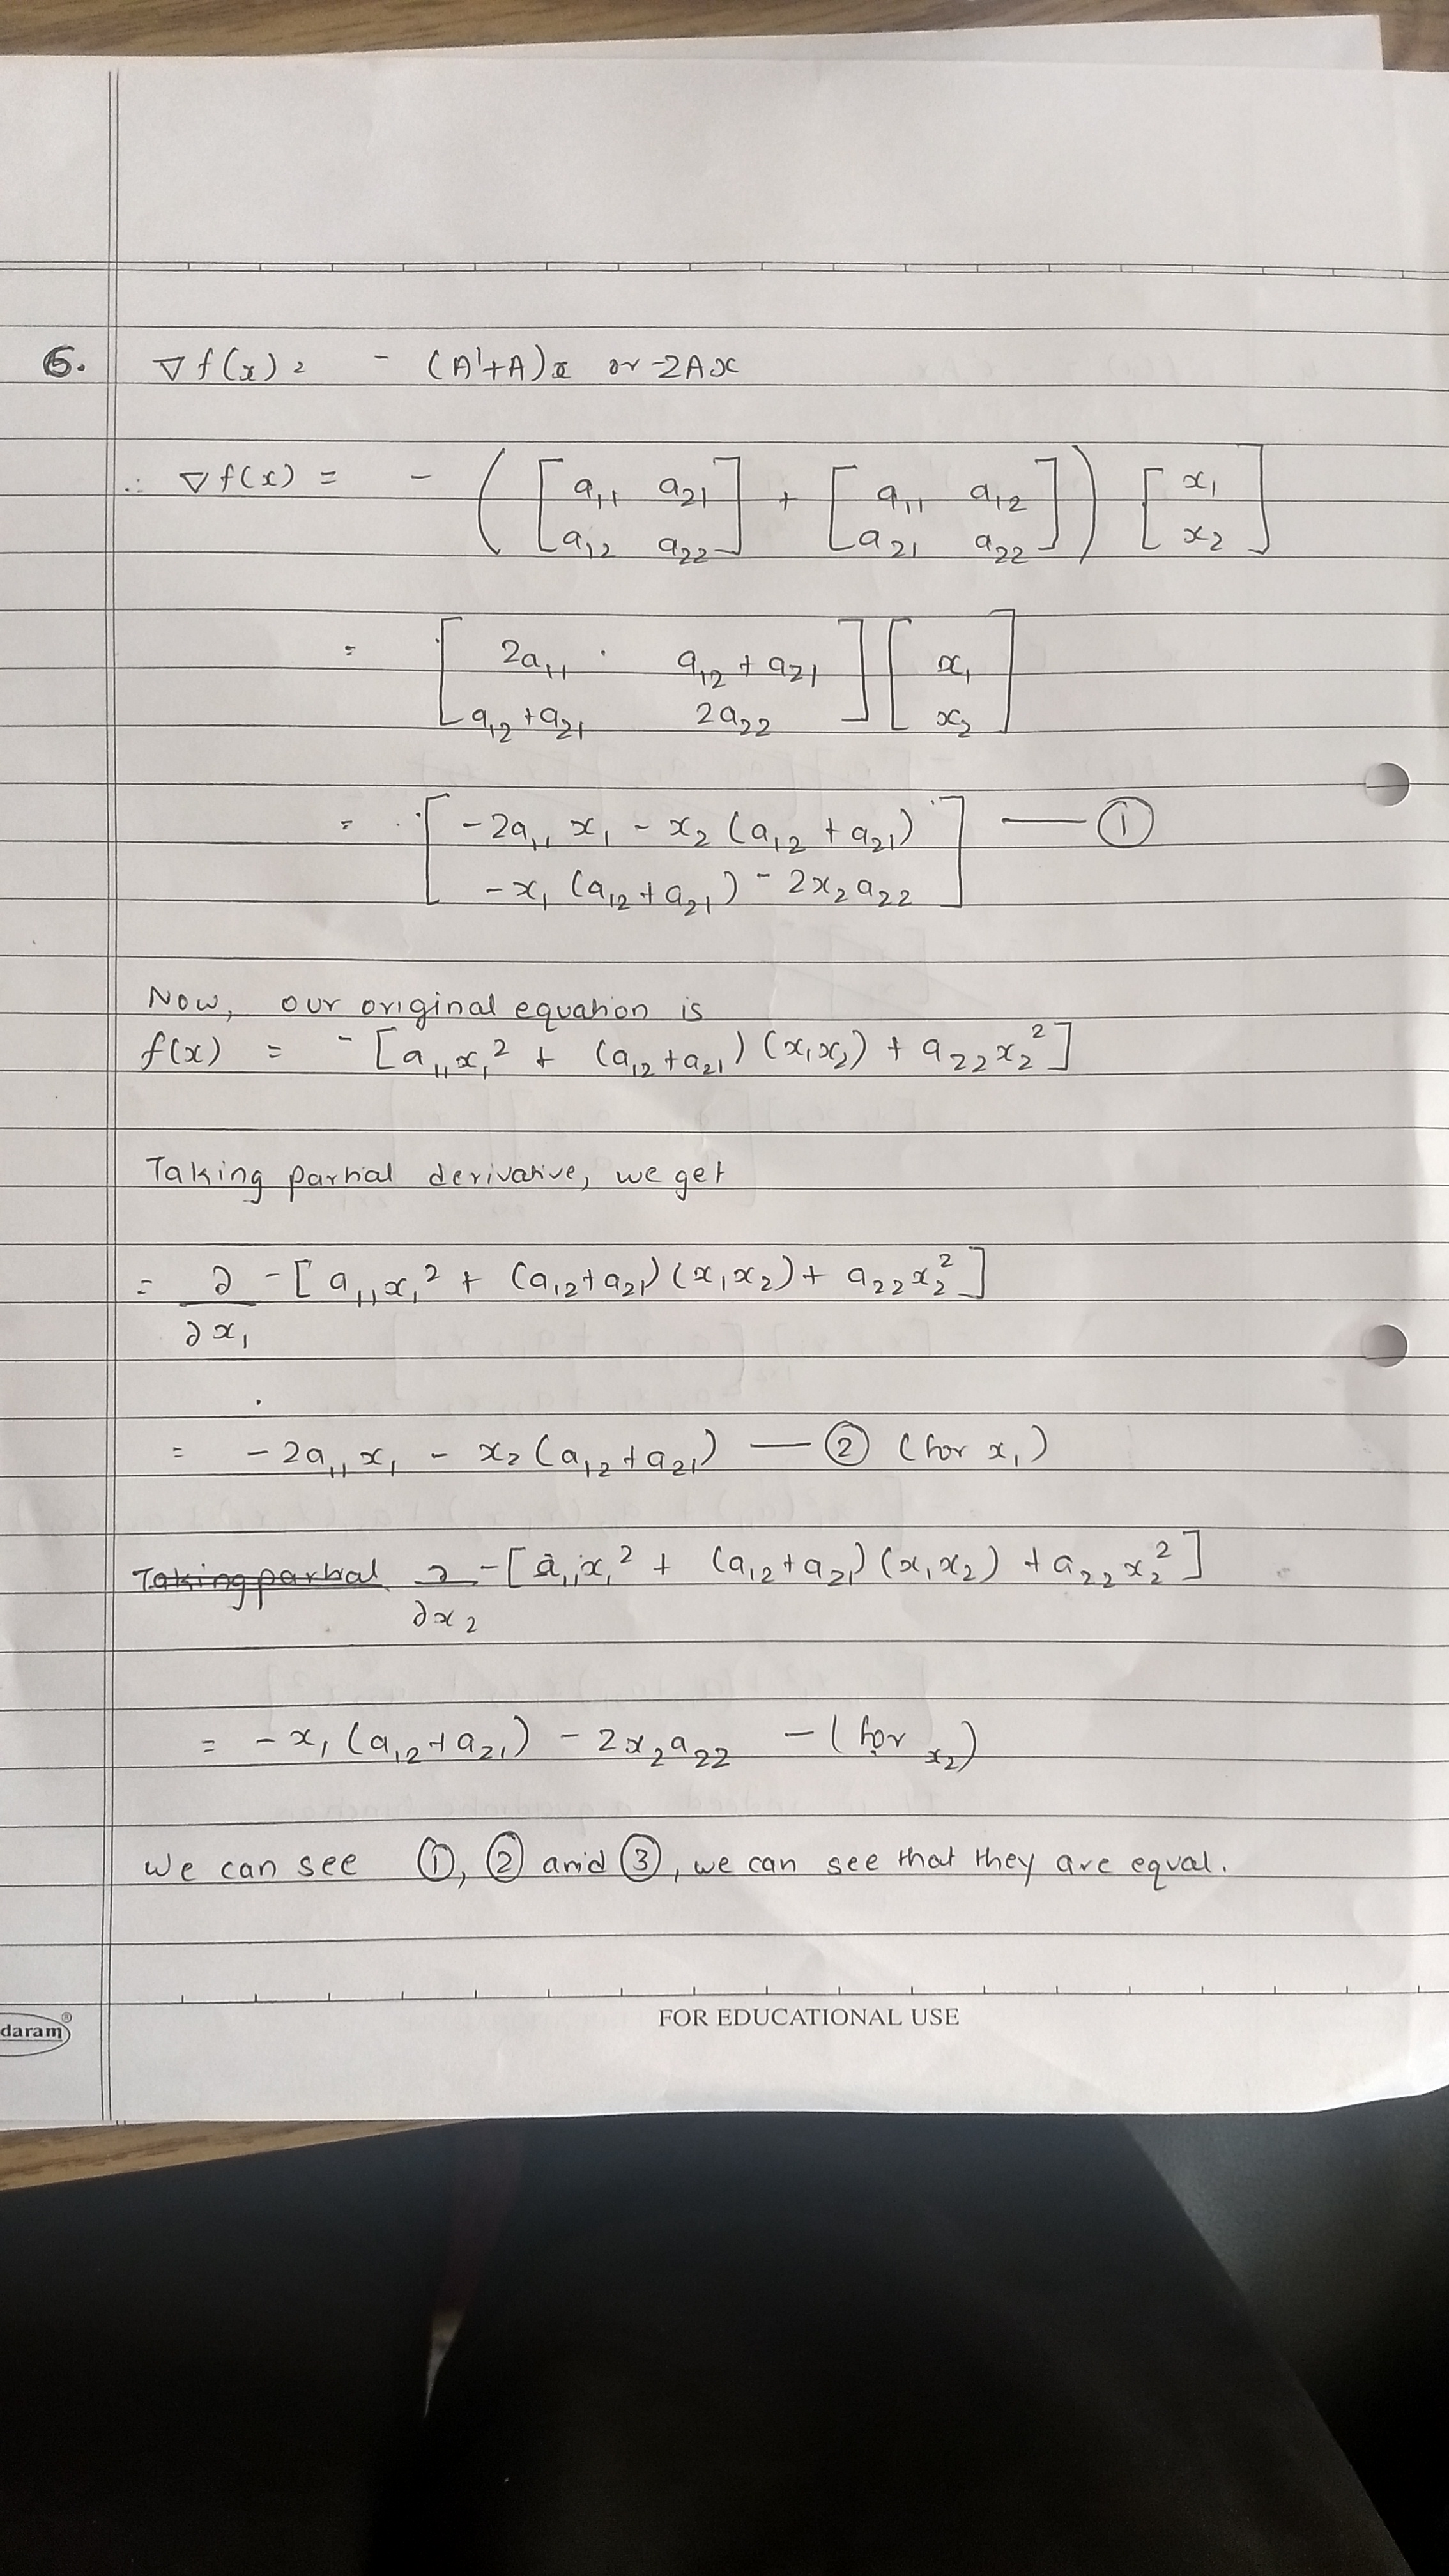 6. ∇f(x) = - (A'+A)x or -2Ax
∴ ∇f(x) = - ( [ a₁₁ a₂₁ ] + [ a₁₁ a₁₂ ] ) [ x₁ ]
[ a₁₂ a₂₂ ] [ a₂₁ a₂₂ ] [ x₂ ]
= [ 2a₁₁ a₁₂ + a₂₁ ] [ x₁ ]
[ a₁₂ + a₂₁ 2a₂₂ ] [ x₂ ]
= [ -2a₁₁ x₁ - x₂ (a₁₂ + a₂₁) ] — ①
[ -x₁ (a₁₂ + a₂₁) - 2x₂ a₂₂ ]
Now, our original equation is
f(x) = - [a₁₁x₁² + (a₁₂ + a₂₁) (x₁x₂) + a₂₂x₂²]
Taking partial derivative, we get
= ∂ -[ a₁₁x₁² + (a₁₂ + a₂₁) (x₁x₂) + a₂₂x₂² ]
∂x₁
= -2a₁₁x₁ - x₂ (a₁₂ + a₂₁) — ② (for x₁)
Taking partial ∂ -[ a₁₁x₁² + (a₁₂ + a₂₁) (x₁x₂) + a₂₂x₂² ]
∂x₂
= -x₁ (a₁₂ + a₂₁) - 2x₂a₂₂ - (for x₂)
We can see ①, ② and ③, we can see that they are equal.
daram®
FOR EDUCATIONAL USE